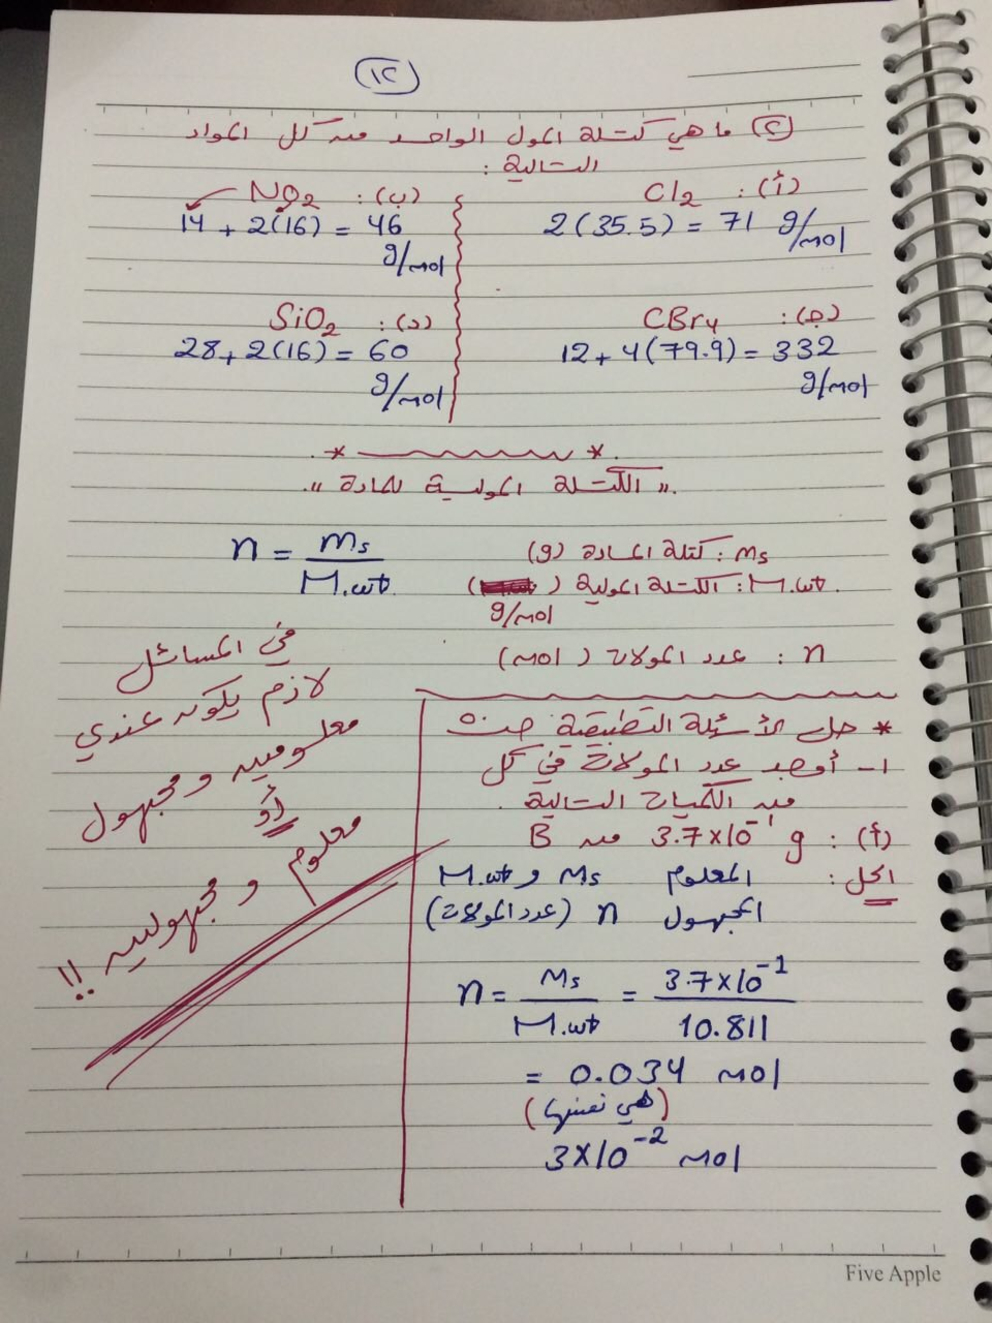 ١٢
(٢) ما هي كتلة المول الواحد من كل المواد
التالية :
(أ) : Cl2
2(35.5) = 71 g/mol
(ب) : NO2
14 + 2(16) = 46
g/mol
(ج) : CBr4
12 + 4(79.9) = 332
g/mol
(د) : SiO2
28 + 2(16) = 60
g/mol
* *
"الكتلة المولية للمادة"
n = ms / M.wt
ms : كتلة المادة (g)
M.wt : الكتلة المولية ( )
g/mol
n : عدد المولات (mol)
في المسائل
لازم يكون عندي
معلومين و مجهول
أو
معلوم و مجهولين !!
* حل الأسئلة التطبيقية ص
١- أوجد عدد المولات في كل
من الكميات التالية .
(أ) : 3.7×10⁻¹ g من B
الحل : المعلوم ms و M.wt
المجهول n (عدد المولات)
n = ms / M.wt = 3.7×10⁻¹ / 10.811
= 0.034 mol
(هي نفسها)
3×10⁻² mol
Five Apple